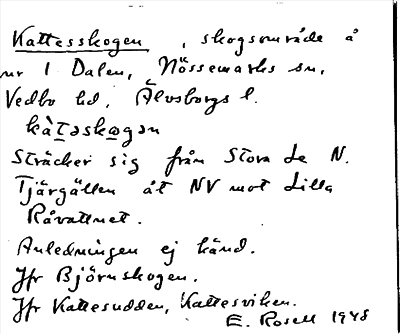 Kattesskogen, skogsområde å
nr 1 Dalen, Nössemarks sn,
Vedbo hd, Älvsborgs l.
kàt̲əsko̲gən
Sträcker sig från Stora Le N.
Tjärgällen åt NV mot Lilla
Råvattnet.
Anledningen ej känd.
Jfr Björnskogen.
Jfr Kattesudden, Kattesviken.
E. Rosell 1948